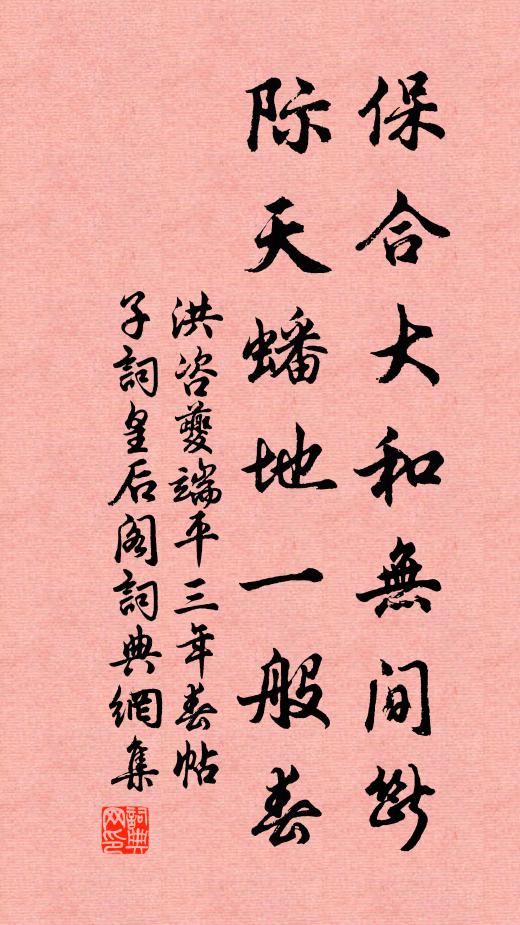 保合大和無間斷
际天蟠地一般春
洪咨夔端平三年春帖
子詞皇后阁詞典網集
詞典网印